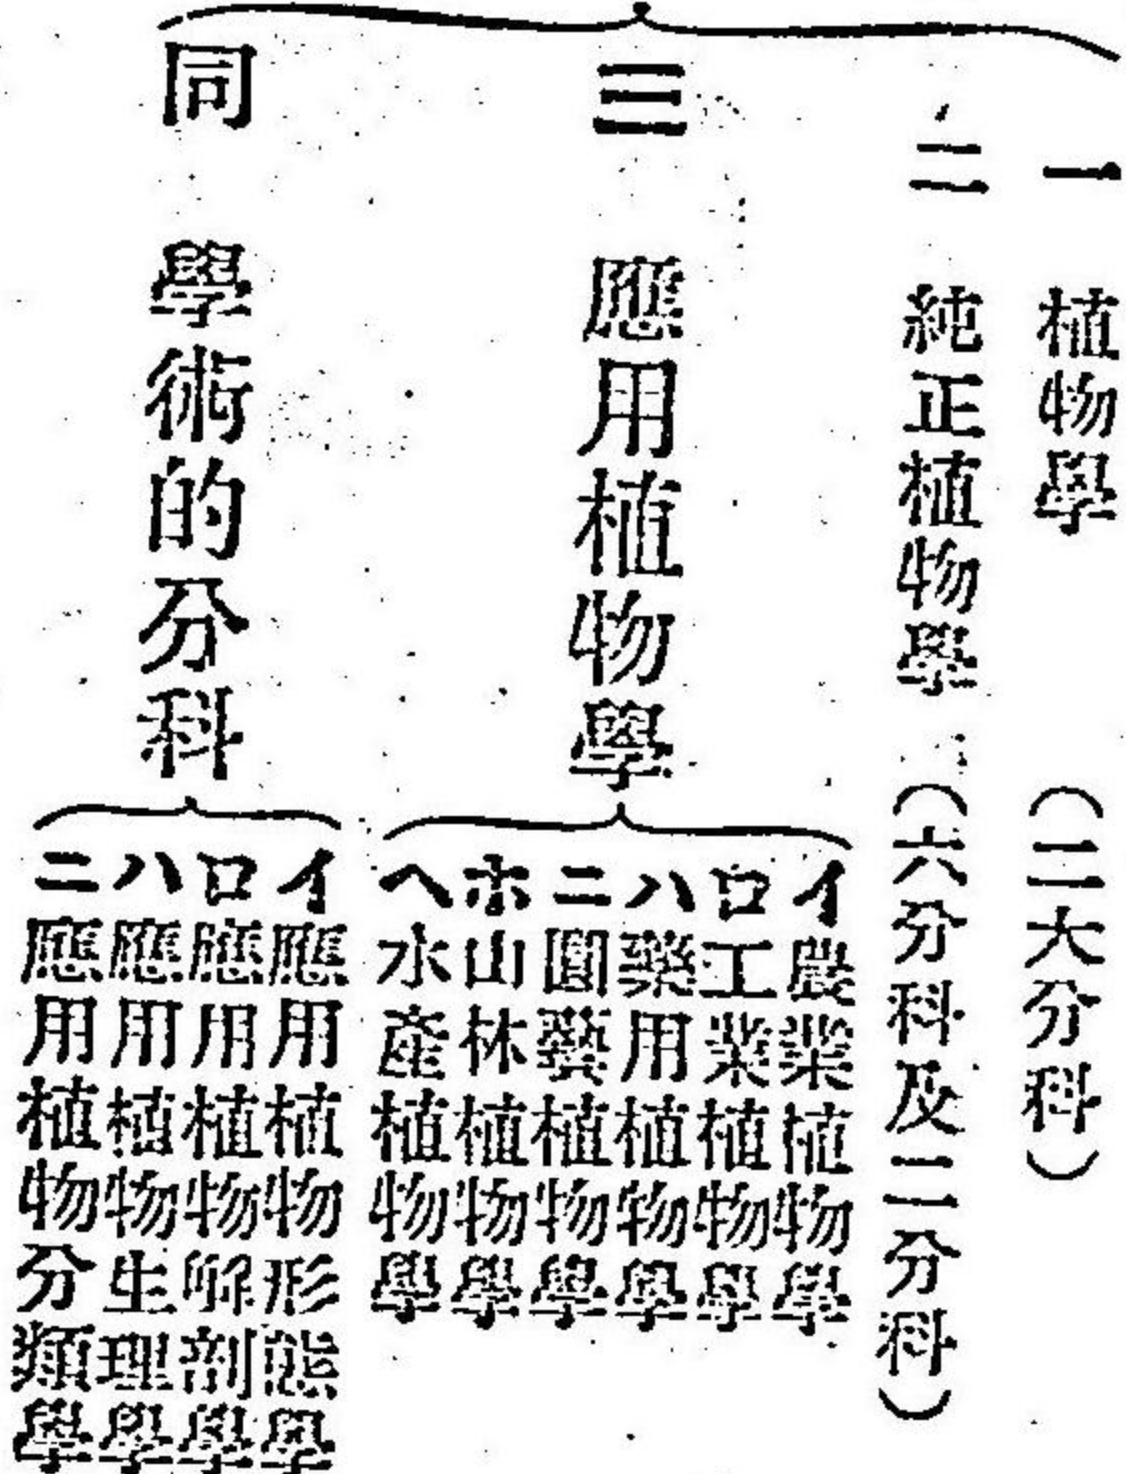 一 植物學 (二大分科)
二 純正植物學 (六分科及二分科)
三 應用植物學
イ農業植物學
ロ工業植物學
ハ藥用植物學
ニ園藝植物學
ホ山林植物學
ヘ水產植物學
同 學術的分科
イ應用植物形態學
ロ應用植物解剖學
ハ應用植物生理學
ニ應用植物分類學